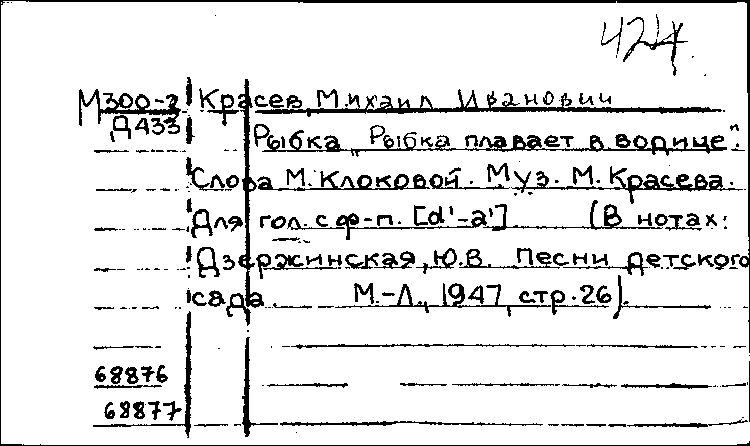 424
М300-2 Красев, Михаил Иванович
Д433
Рыбка „Рыбка плавает в водице".
Слова М. Клоковой. Муз. М. Красева.
Для гол. с ф-п. [d'-a'] (В нотах:
Дзержинская, Ю.В. Песни детского
сада. М.-Л., 1947, стр. 26).
68876
68877